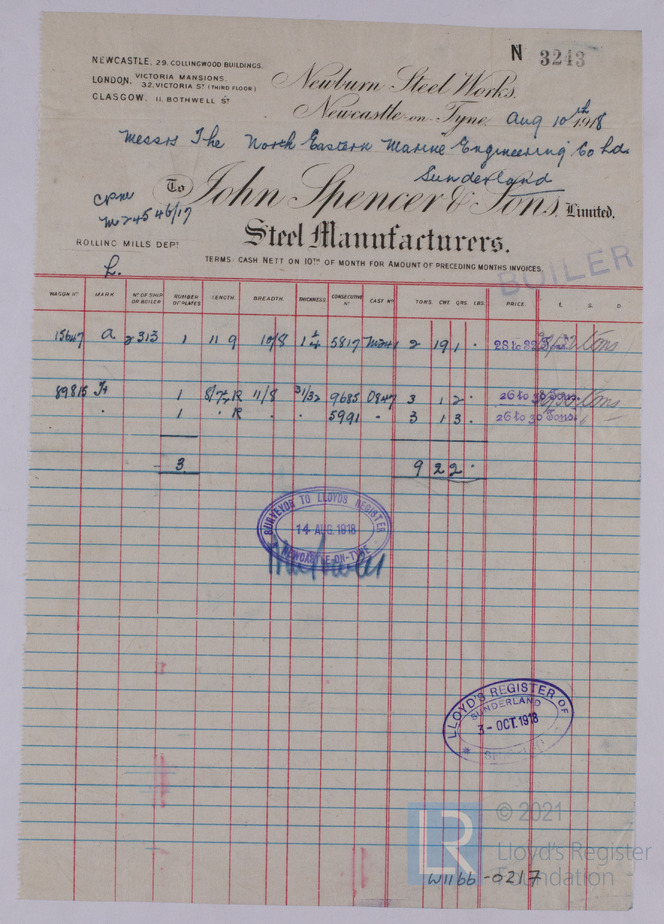 N 3243
NEWCASTLE, 29, COLLINGWOOD BUILDINGS.
LONDON, VICTORIA MANSIONS,
32, VICTORIA ST (THIRD FLOOR)
GLASGOW, 11, BOTHWELL ST
Newburn Steel Works,
Newcastle-on-Tyne, Aug 10th 1918
Messrs The North Eastern Marine Engineering Co Ld.
Sunderland
To John Spencer & Sons, Limited.
4546/17
Steel Manufacturers.
ROLLING MILLS DEPT
TERMS: CASH NETT ON 10TH OF MONTH FOR AMOUNT OF PRECEDING MONTHS INVOICES.
L.
BOILER
WAGON No MARK No OF SHIP OR BOILER NUMBER OF PLATES LENGTH. BREADTH. THICKNESS. CONSECUTIVE No CAST No TONS. CWT. QRS. LBS. PRICE. £. S. D.
a 2313 1 11 9 10/8 1 1/4 5817 2 19 1 . 28 to 32 Tons
89815 1 11/8 31/32 9685 0847 3 1 2 . 26 to 30 Tons.
" 1 " R " " 5991 " 3 1 3 . 26 to 30 Tons.
3 9 2 2 .
SURVEYOR TO LLOYDS REGISTER
14 AUG. 1918
NEWCASTLE-ON-TYNE
LLOYD'S REGISTER OF
SUNDERLAND
3 - OCT. 1918
SHIPPING
LR
© 2021
Lloyd's Register
Foundation
W1166-0217